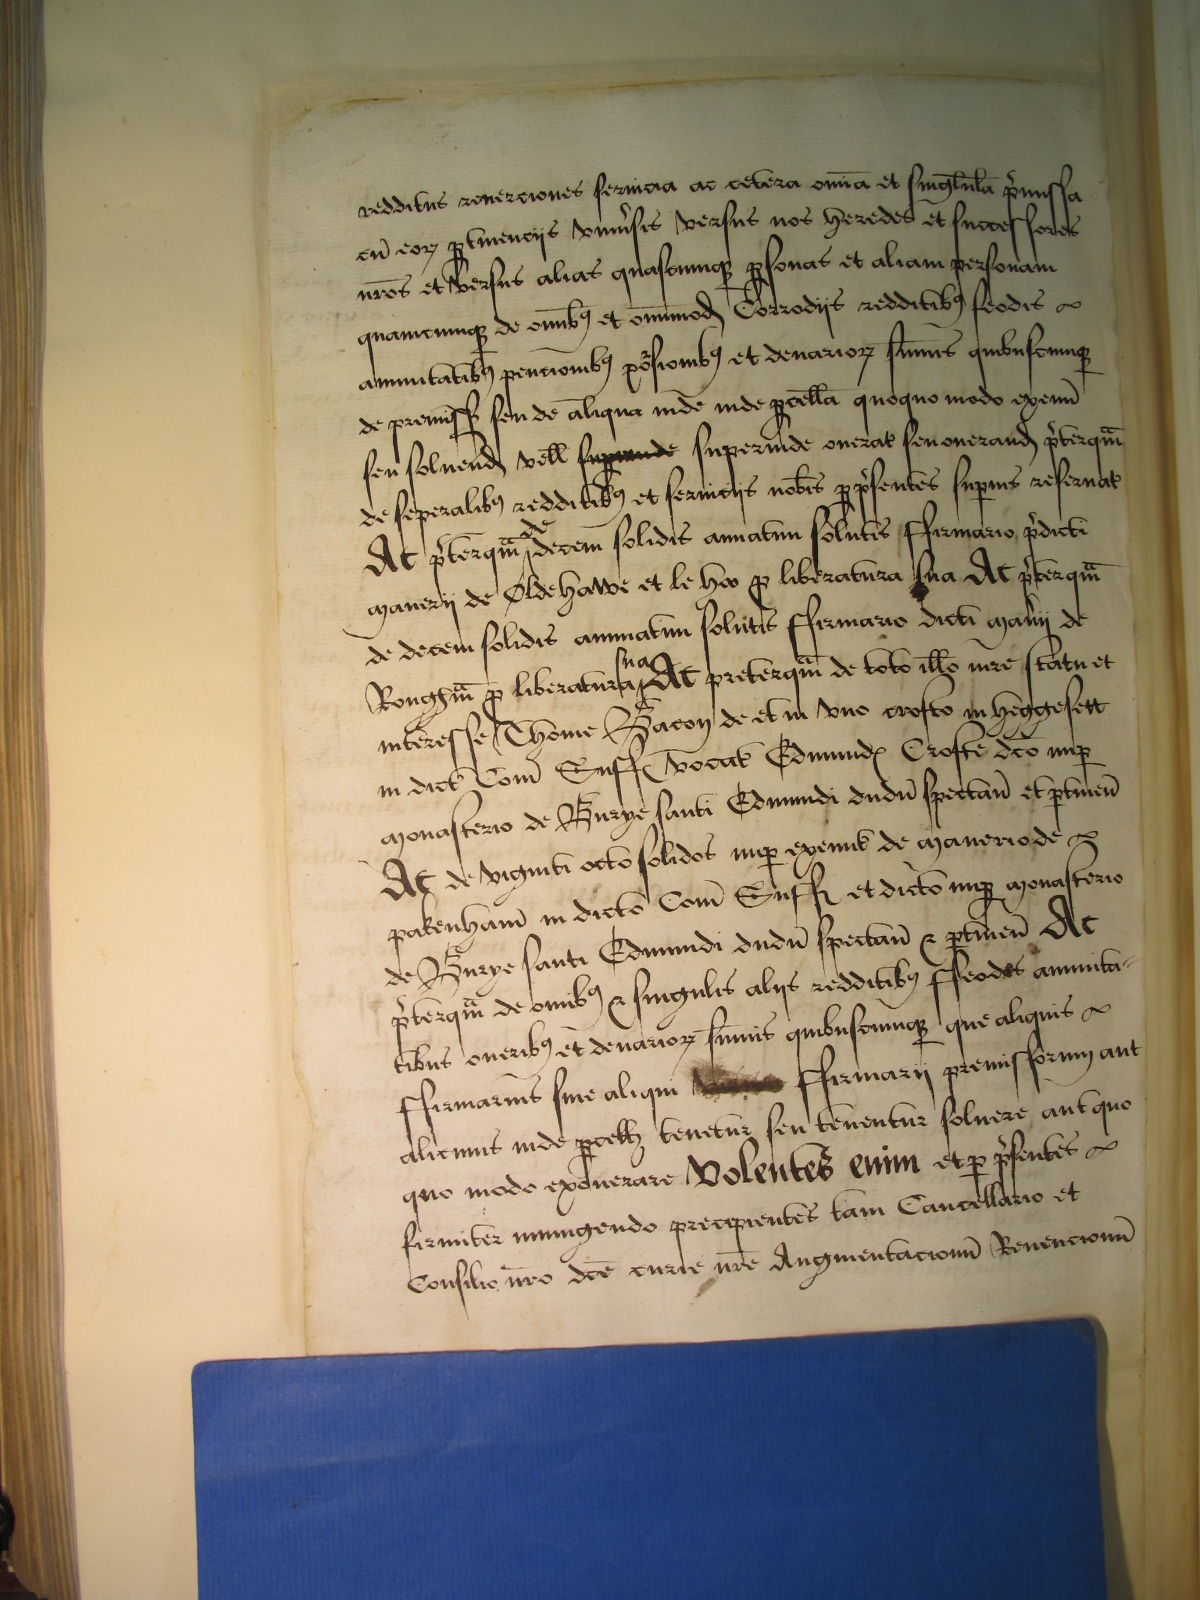 redditus reuerciones seruicia ac cetera om̄ia et singlūla p̄missa
cū eoꝝ ꝑtinencijs vniu̓sis versus nos heredes et successores
nr̄os et versus alias quascumqꝫ ꝑsonas et aliam personam
quamcumqꝫ de om̄ibꝫ et om̄imod Corrodijs redditibꝫ feodis
annuitatibꝫ pencionibꝫ porc̄ionibꝫ et denarioꝝ sum̄is quibuscumqꝫ
de premiss seu de aliqua inde inde ꝑcella quoquo modo exeun̄
seu soluend vell superinde superinde onerat seu onerand p̄terqm̄
de seperalibꝫ redditibꝫ et seruicijs nobis ꝑ p̄sentes superius reseruat
Ac p̄terqm̄ de decem solidis annatim solutis ffirmario p̄dicti
manerij de Oldehawe et le hoo ꝓ liberatura sua Ac p̄terqm̄
de decem solidis annuatim solutis ffirmario dicti man̄ij de
Rougħm̄ ꝓ liberatura sua Ac preterqm̄ de toto illo iure statu et
interesse Thome Bacon de et in vno crofto in heggesett
in dict Com̄ Suff vocat Edmund Crofte dc̄o nuꝑ
monasterio de Burye santi Edmundi dudū spectan̄ et ꝑtinen̄
Ac de viginti octo solidos nuꝑ exeunt de manerio de
pakenham̄ in dicto Com̄ Suff et dicto nuꝑ monasterio
de Burye santi Edmundi dudū spectan̄ & ꝑtinen̄ Ac
p̄terqm̄ de om̄ibꝫ & singulis alijs redditibꝫ ffeodes annuita-
tibus oneribꝫ et denarioꝝ sum̄is quibuscumqꝫ que aliquis
ffirmarius siue aliqui ffirmarij premissorum aut
alicuius inde ꝑcelle tenetur seu tenentur soluere aut quo
quo modo exonerare Volentes enim et ꝑ p̄sentes
firmiter iniungendo precipientes tam Cancellario et
Consilio nr̄o dc̄e curie nr̄e Augmentacionū Reuencionū